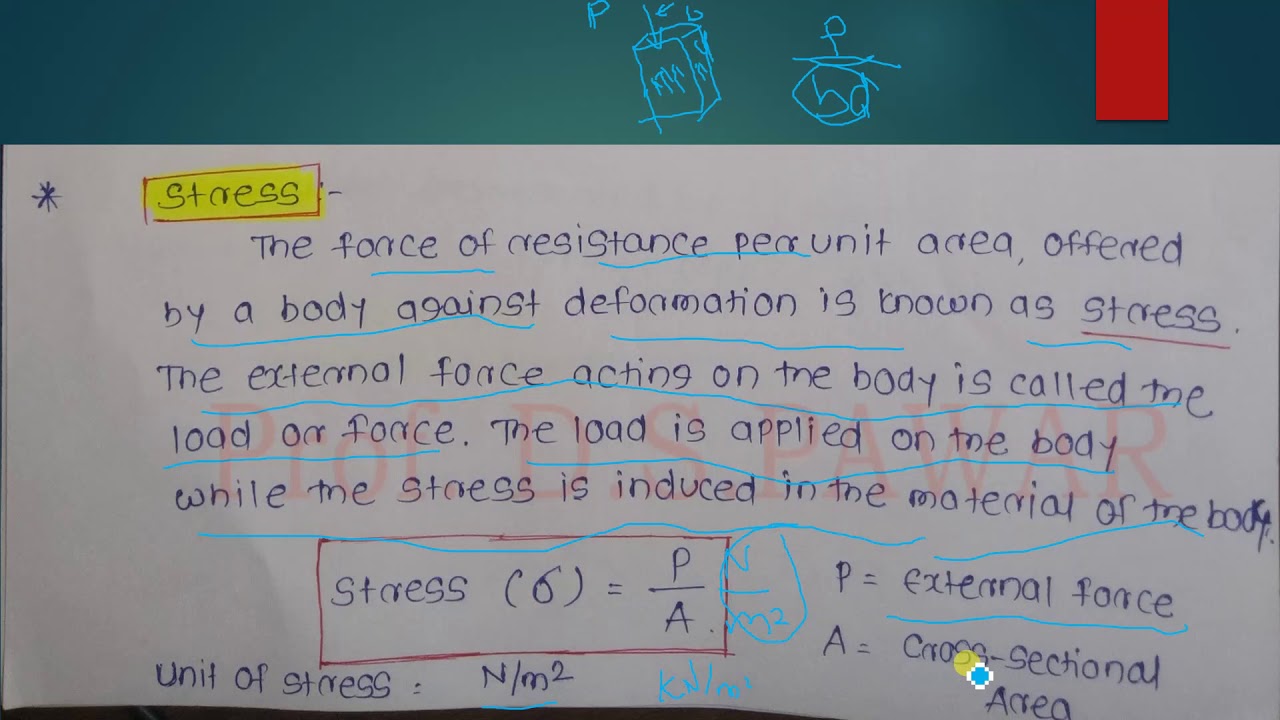 P b
P
bd
* Stress :-
The force of resistance per unit area, offered
by a body against deformation is known as stress.
The external force acting on the body is called the
load or force. The load is applied on the body
while the stress is induced in the material of the body.
Stress (σ) = P/A N/m²
P = External force
A = Cross-sectional
Area
Unit of stress : N/m² KN/m²
Prof. D.S PAWAR